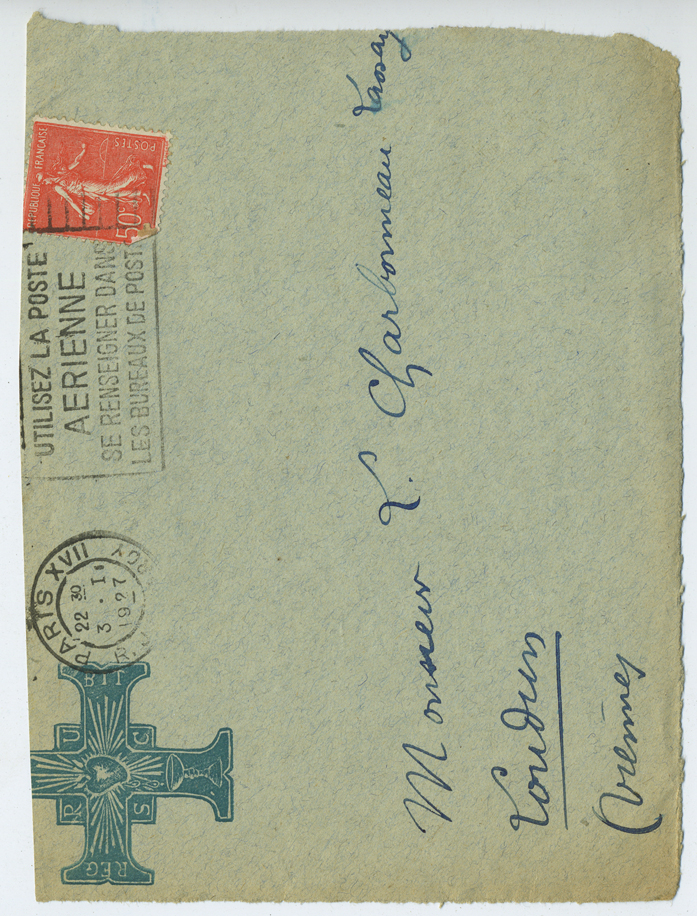 REPUBLIQUE FRANÇAISE
POSTES
50c
UTILISEZ LA POSTE
AERIENNE
SE RENSEIGNER DANS
LES BUREAUX DE POSTE
PARIS XVII
22 30
3 . I
1927
BIT
U C
R S
REG
Monsieur L. Charbonneau Lassay
Loudun
(Vienne)